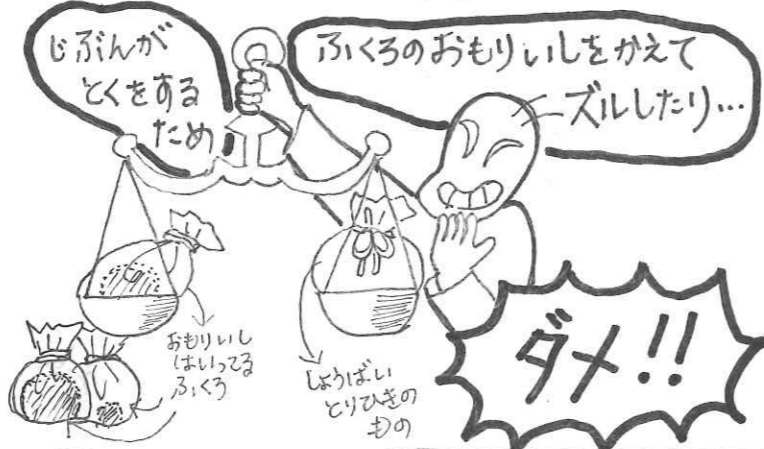 じぶんが
とくをする
ため
ふくろのおもりいしをかえて
ズルしたり…
おもりいし
はいってる
ふくろ
しょうばい
とりひきの
もの
ダメ!!